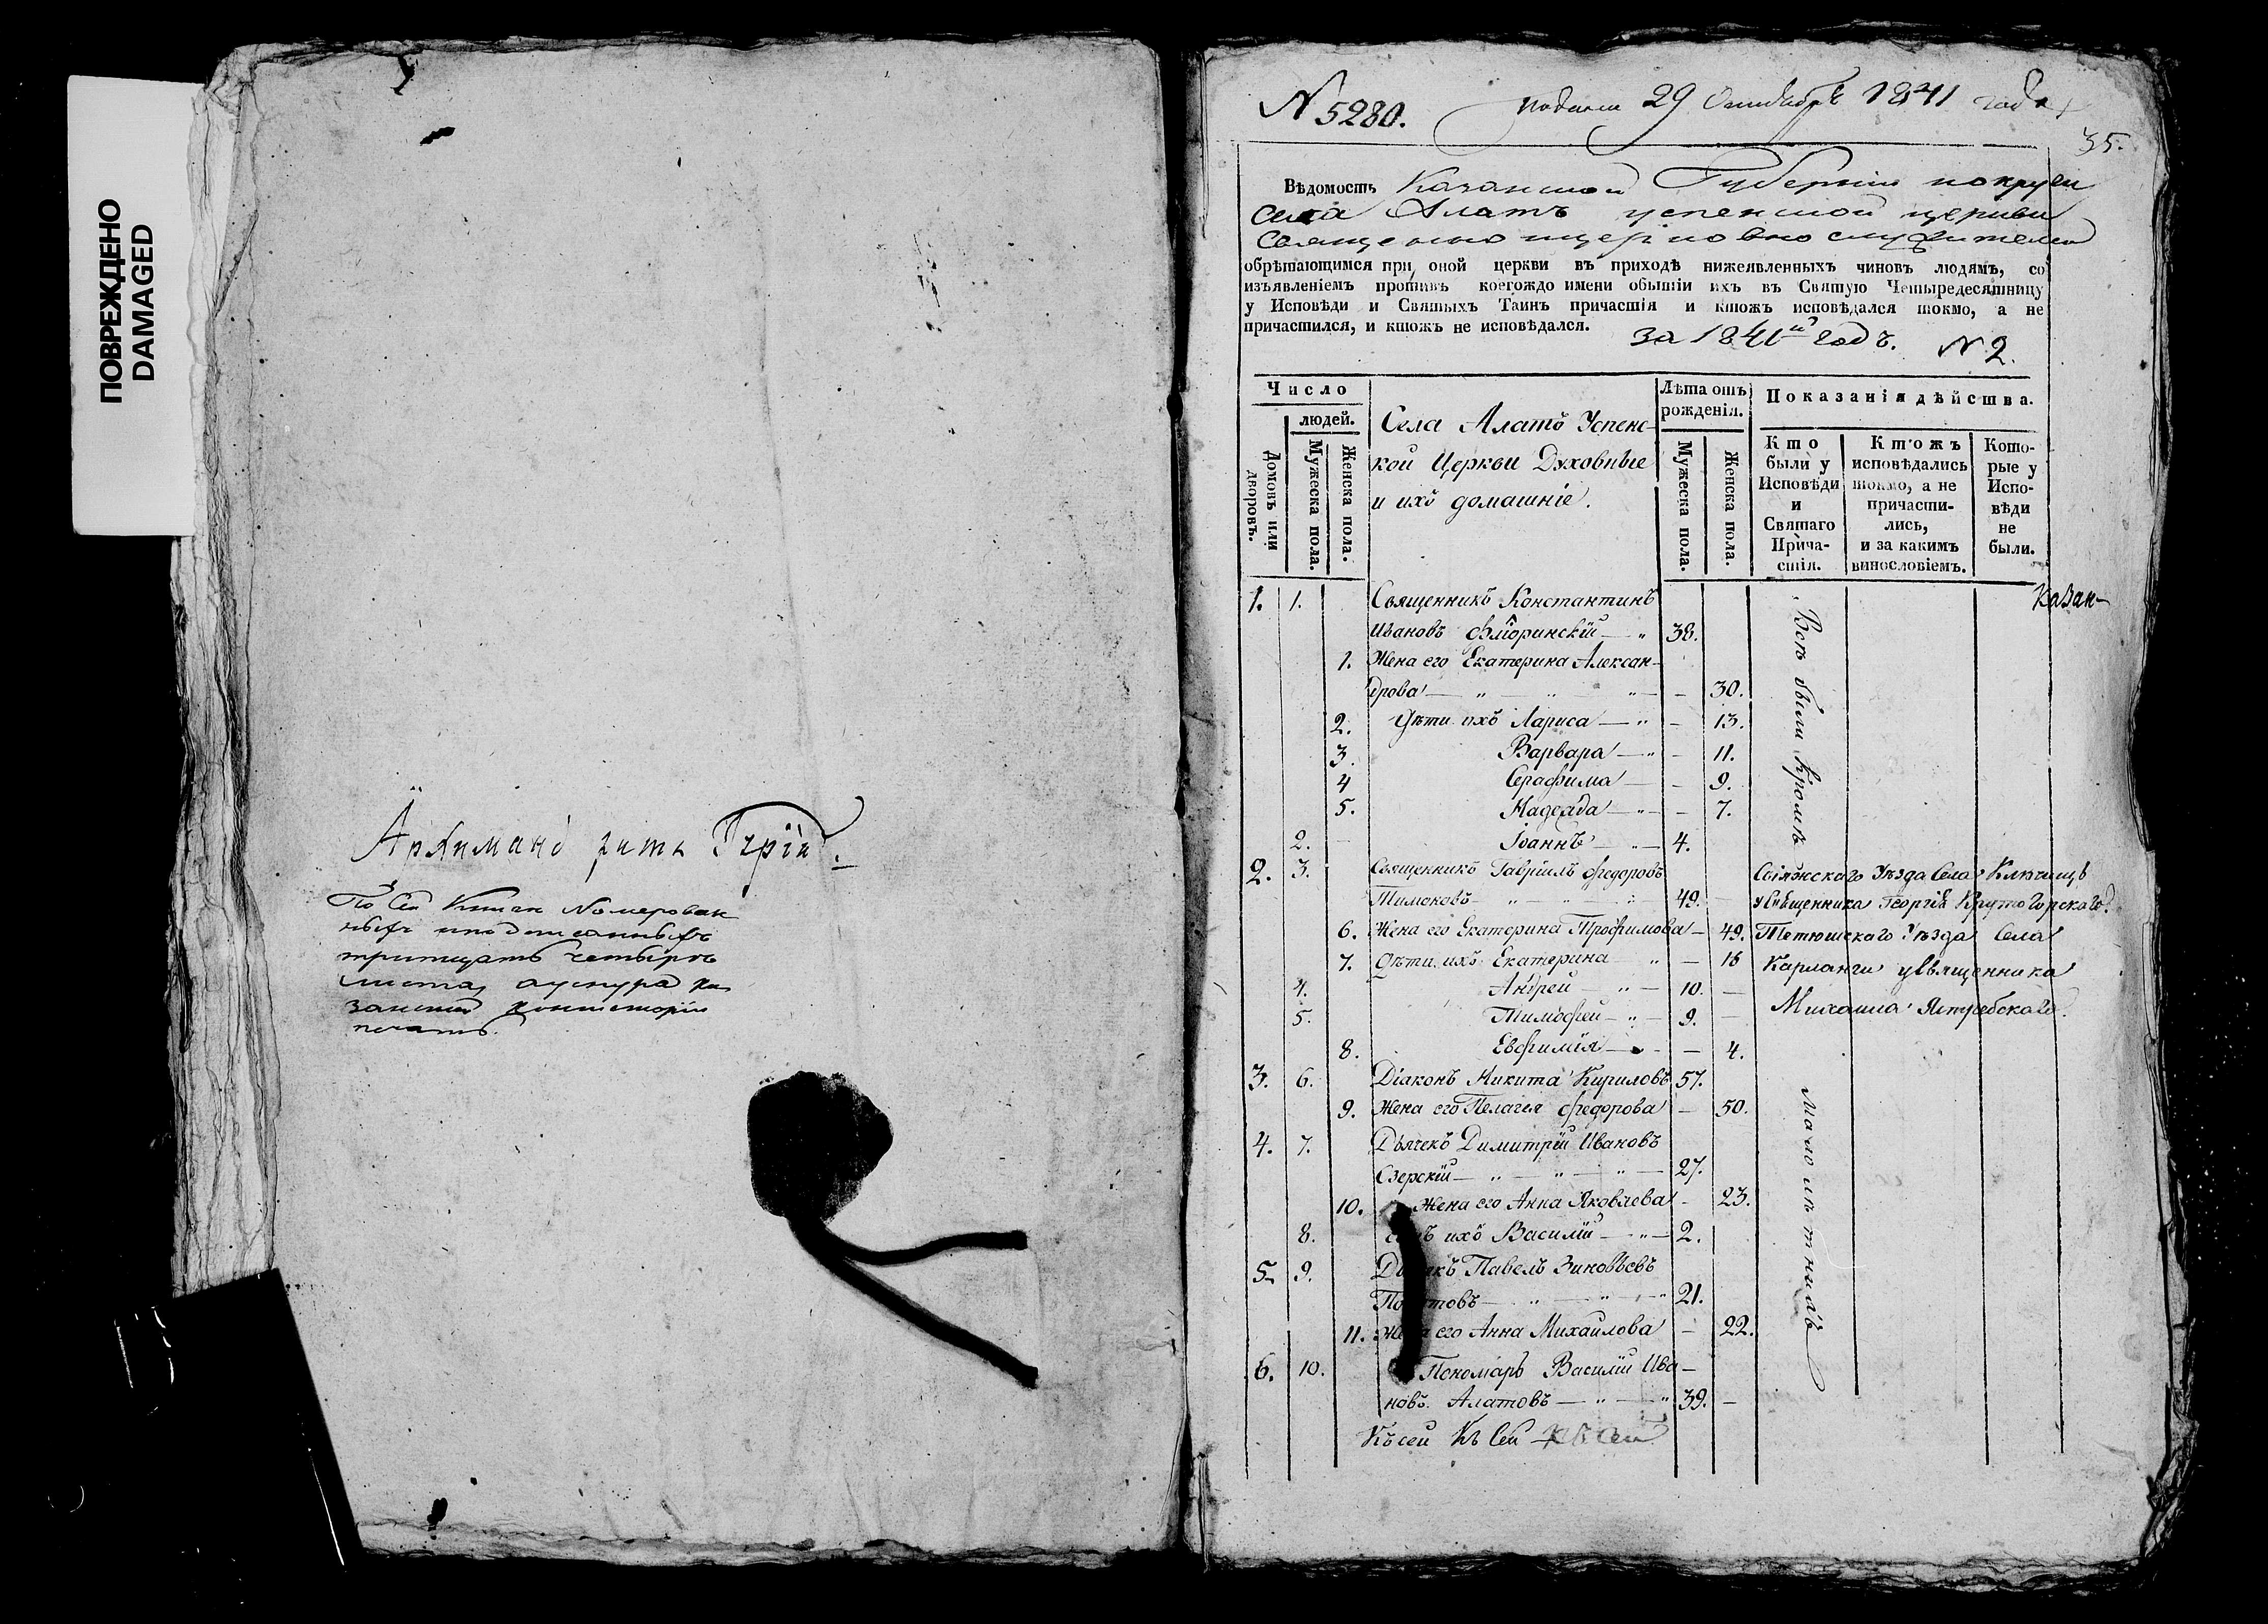 ПОВРЕЖДЕНО
DAMAGED
Архимандритъ Гурій.
По сей книге номерован
ныхъ
тритцать четыре
листа,
печать.
N 5280.
29 Октября 1841 года
35.
Вѣдомость Казанской Губерніи
села Алатъ успенской церкви
обрѣтающимся при оной церкви въ приходѣ нижеявленныхъ чиновъ людямъ, со
изъявленіемъ противъ коегождо имени обытіи ихъ въ Святую Четыредесятницу
у Исповѣди и Святыхъ Таинъ причастія и ктожъ исповѣдался токмо, а не
причастился, и ктожъ не исповѣдался.
за 1841й годъ. N 2.
Число
людей.
Домовъ или дворовъ.
Мужеска пола.
Женска пола.
Села Алатъ Успенс-
кой Церкви Духовные
и ихъ домашніе.
Лѣта отъ
рожденія.
Мужеска пола.
Женска пола.
Показанія дѣйства.
Кто
были у
Исповѣди
и
Святаго
Прича-
стія.
Ктожъ
исповѣдались
токмо, а не
причасти-
лись,
и за какимъ
винословіемъ.
Кото-
рые у
Испо-
вѣди
не
были.
1. 1. Священникъ Константинъ
Казан-
Ивановъ 38.
1. Жена его Екатерина Алексан-
дрова 30.
2. Дѣти ихъ Лариса 13.
3. Варвара 11.
4 Серафима 9.
5. Надежда 7.
2. Іоаннъ 4.
Всѣ были кромѣ
2. 3. Священникъ Гавріилъ Федоровъ
Свіяжскаго Уѣзда Села Ключищъ
Тимоновъ 49. священника Георгія Крутогорскаго.
6. Жена его Екатерина Трофимова 49. Тетюшскаго Уѣзда Села
7. Дѣти ихъ Екатерина 16 Карланги священника
4. Андрей 10. Михаила Ястребскаго.
5. Тимофей 9.
8. Евфимія 4.
3. 6. Діаконъ Никита Кириловъ 57.
9. Жена его Пелагея Федорова 50.
малолѣтныхъ
4. 7. Дьячекъ Димитрій Ивановъ
Озерскій 27.
10. Жена его Анна Яковлева 23.
8. ихъ Василій 2.
5. 9. Павелъ Зиновьевъ
21.
11. его Анна Михайлова 22.
6. 10. Пономарь Василій Ива-
новъ Алатовъ 39.
Къ сей Къ Сей Къ Сей